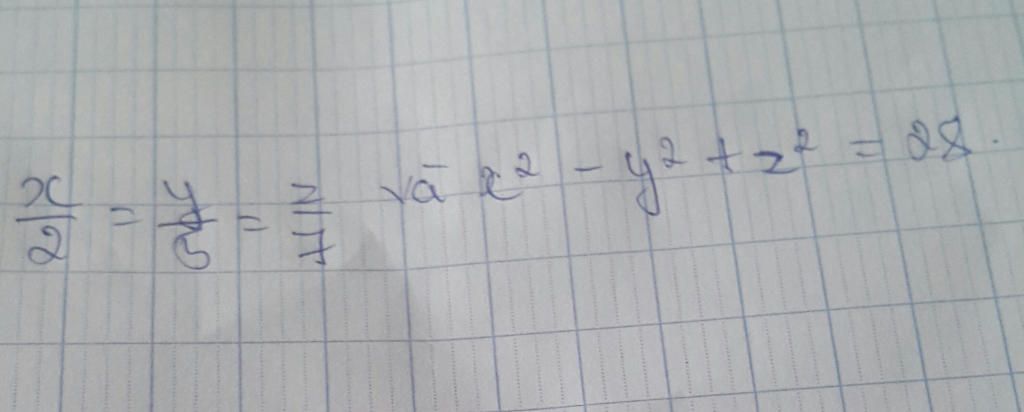 x/2 = y/5 = z/7 và x² - y² + z² = 28.